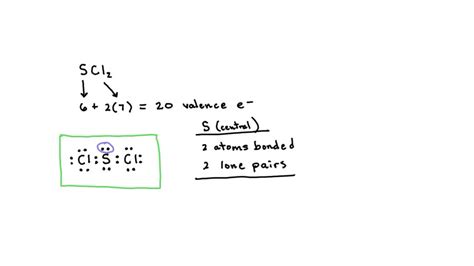 SCl₂
6 + 2(7) = 20 valence e⁻
S (central)
2 atoms bonded
2 lone pairs
:Cl:S:Cl: